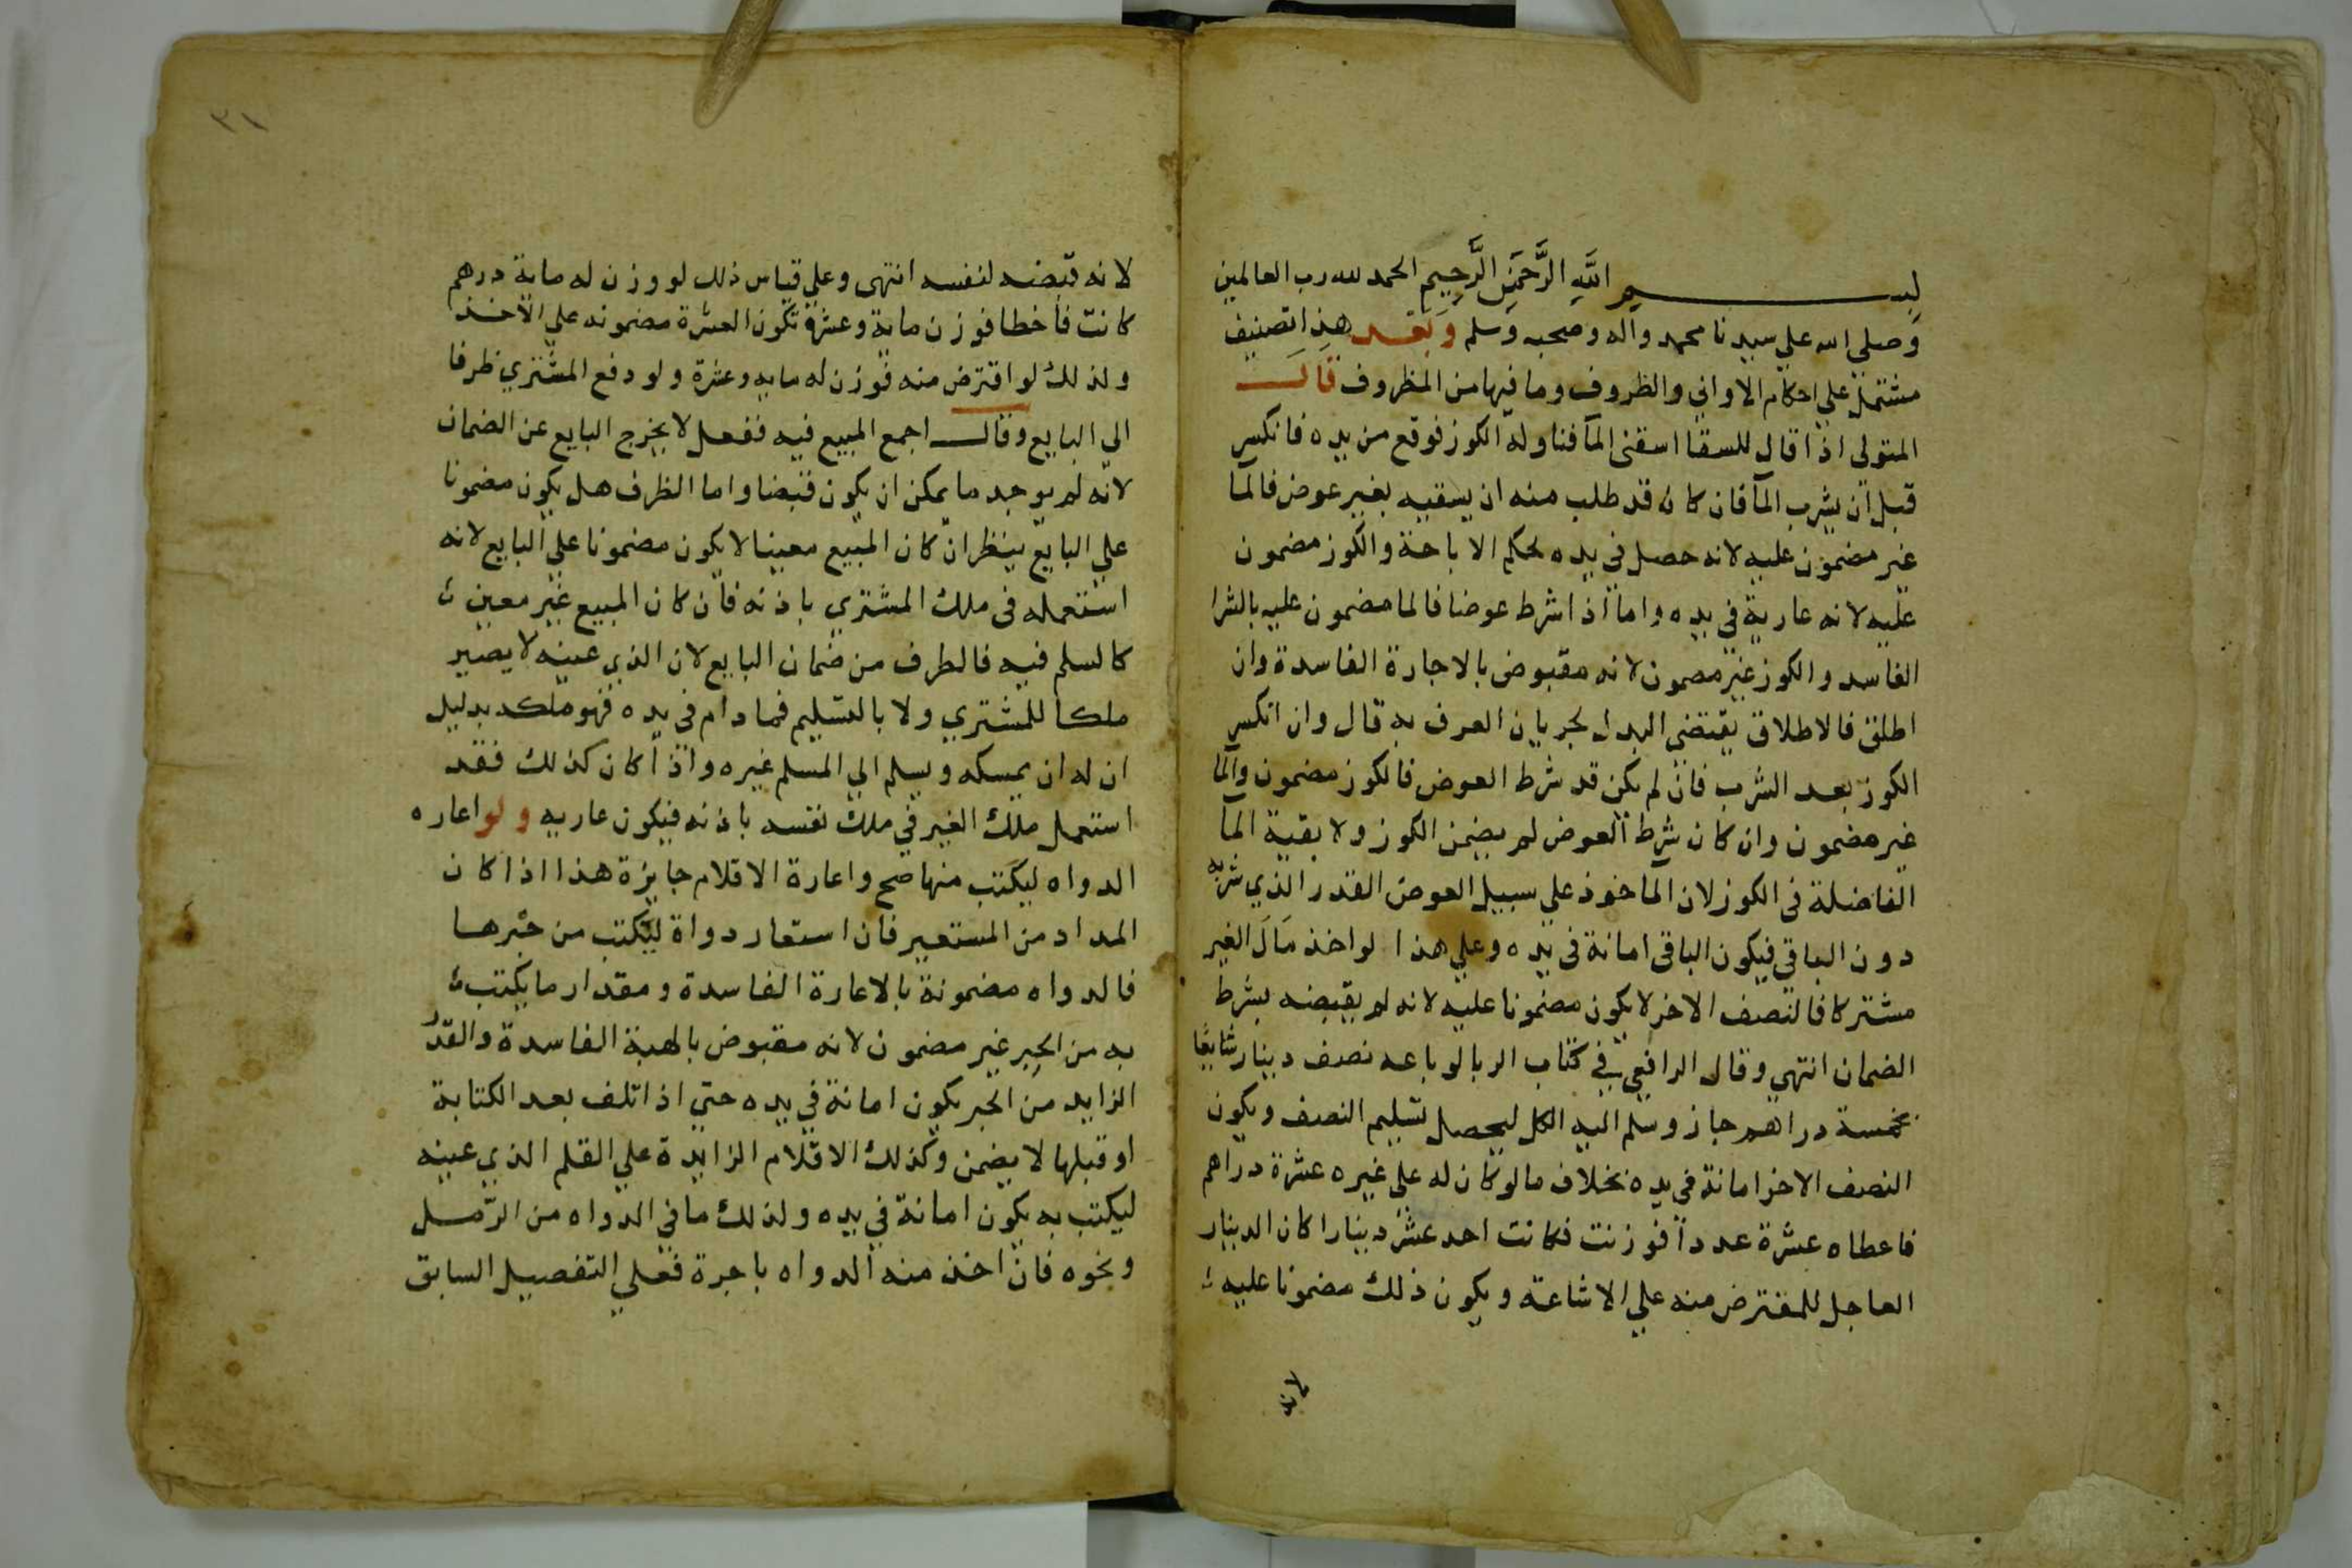 بسم الله الرَّحمَنِ الرَّحِيمِ الحمد لله رب العالمين
وصلي الله علي سيدنا محمد واله وصحبه وسلم وَبَعْد هذا تصنيف
مشتمل علي احكام الاواني والظروف وما فيها من المظروف قال
المتولى اذا قال للسقا اسقنى المآ فناوله الكوز فوقع من يده فانكسر
قبل ان يشرب المآ فان كان قد طلب منه ان يسقيه بغير عوض فالما
غير مضمون عليه لانه حصل فى يده بحكم الاباحة والكوز مضمون
عليه لانه عارية في يده واما اذا شرط عوضا فالما مضمون عليه بالشرا
الفاسد والكوز غير مضمون لانه مقبوض بالاجارة الفاسدة وان
اطلق فالاطلاق يقتضي البدل لجريان العرف به قال وان انكسر
الكوز بعد الشرب فان لم يكن قد شرط العوض فالكوز مضمون والما
غير مضمون وان كان شرط العوض لم يضمن الكوز ولا بقية الما
الفاضلة فى الكوز لان الماخوذ علي سبيل العوض القدر الذي شربه
دون الباقي فيكون الباقى امانة فى يده وعلي هذا لو اخذ مَالَ الغير
مشتركا فالنصف الاخر لا يكون مضمونا عليه لانه لم يقبضه بشرط
الضمان انتهى وقال الرافعي في كتاب الربا لو باعه نصف دينار شايعًا
بخمسة دراهم جاز وسلم اليه الكل ليحصل تسليم النصف ويكون
النصف الاخر امانة فى يده بخلاف ما لو كان له على غيره عشرة دراهم
فاعطاه عشرة عددا فوزنت فكانت احد عشر دينارا كان الدينار
العاجل للمقترض منه علي الاشاعة ويكون ذلك مضمونا عليه
لانه
٣١
لانه قبضه لنفسه انتهى وعلي قياس ذلك لو وزن له ماية درهم
كانت فاخطا فوزن ماية وعشرة تكون العشرة مضمونه علي الآخذ
ولذلك لو اقترض منه فوزن له مايه وعشرة ولو دفع المشتري ظرفا
الى البايع وقال اجمع المبيع فيه ففعل لا يخرج البايع عن الضمان
لانه لم يوجد ما يمكن ان يكون قبضا واما الظرف هل يكون مضمونا
علي البايع ينظر ان كان المبيع معينا لا يكون مضمونا علي البايع لانه
استعمله فى ملك المشتري باذنه فان كان المبيع غير معين
كالسلم فيه فالظرف من ضمان البايع لان الذي عينه لا يصير
ملكا للمشتري ولا بالتسليم فما دام فى يده فهو ملكه بدليل
ان له ان يمسكه ويسلم الي المسلم غيره واذا كان كذلك فقد
استعمل ملك الغير في ملك نفسه باذنه فيكون عاريه ولو اعاره
الدواه ليكتب منها صح واعارة الاقلام جايزة هذا اذا كان
المداد من المستعير فان استعار دواة ليكتب من حبرها
فالدواه مضمونة بالاعارة الفاسدة ومقدار ما يكتب
به من الحبر غير مضمون لانه مقبوض بالهبة الفاسدة والقدر
الزايد من الحبر يكون امانة في يده حتي اذا تلف بعد الكتابة
او قبلها لا يضمن وكذلك الاقلام الزايدة علي القلم الذي عينه
ليكتب به يكون امانة في يده ولذلك ما في الدواه من الرّمل
ونحوه فان اخذ منه الدواه باجرة فعلي التفصيل السابق